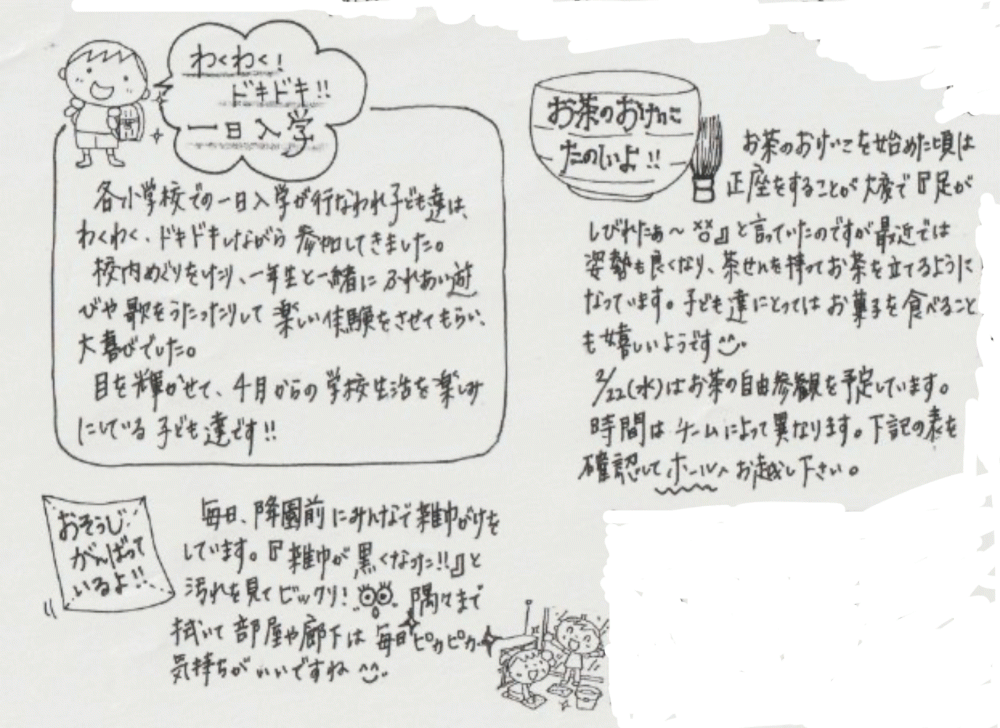 わくわく!
ドキドキ!!
一日入学
各小学校での一日入学が行なわれ子ども達は、
わくわく、ドキドキしながら参加してきました。
校内めぐりをしたり、一年生と一緒にふれあい遊
びや歌をうたったりして楽しい体験をさせてもらい、
大喜びでした。
目を輝かせて、4月からの学校生活を楽しみ
にしている子ども達です!!
お茶のおけいこ
たのしいよ!!
お茶のおけいこを始めた頃は
正座をすることが大変で『足が
しびれたぁ〜』と言っていたのですが最近では
姿勢も良くなり、茶せんを持ってお茶を立てるように
なっています。子ども達にとってはお菓子を食べること
も嬉しいようです^^
2/22(水)はお茶の自由参観を予定しています。
時間はチームによって異なります。下記の表を
確認してホールへお越し下さい。
おそうじ
がんばって
いるよ!!
毎日、降園前にみんなで雑巾がけを
しています。『雑巾が黒くなった!!』と
汚れを見てビックリ! 隅々まで
拭いて部屋や廊下は毎日ピカピカ
気持ちがいいですね^^